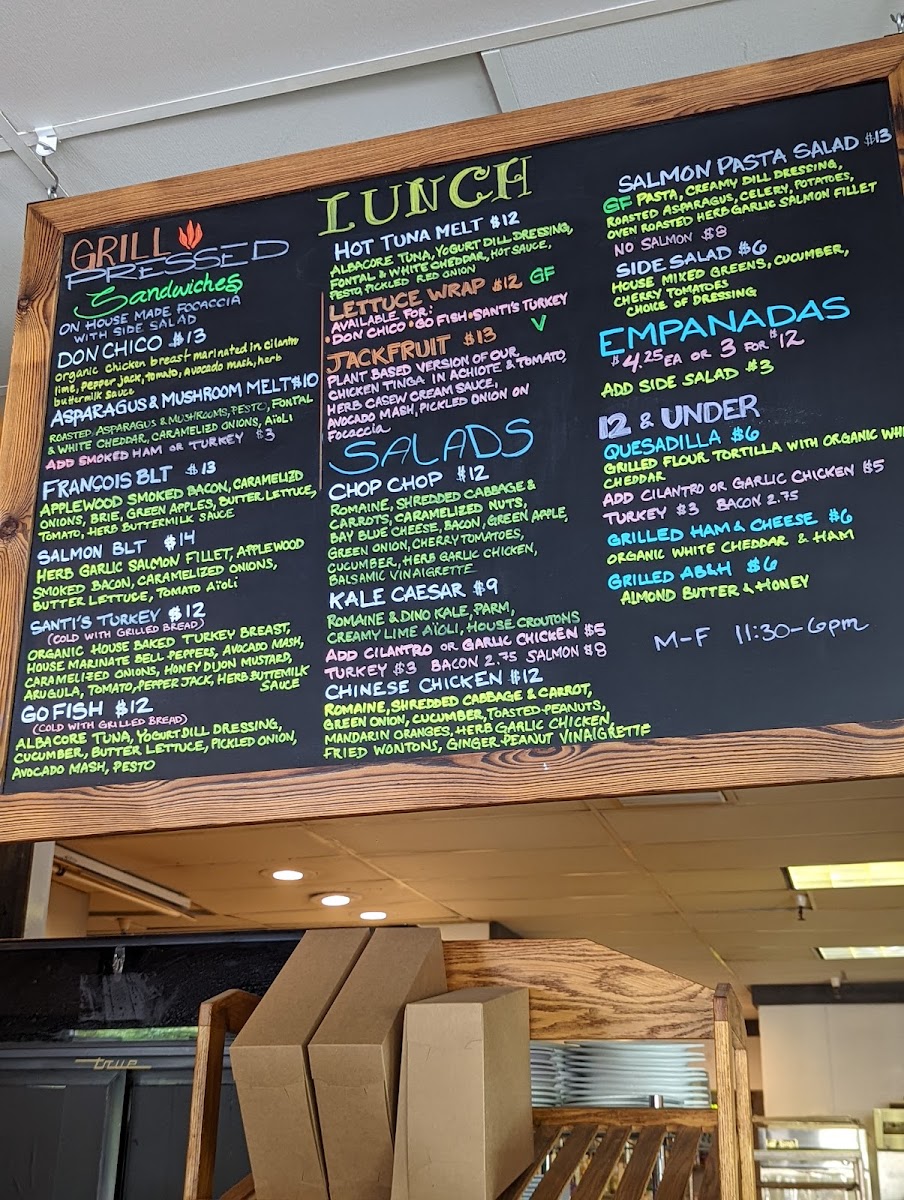 GRILL
PRESSED
Sandwiches
ON HOUSE MADE FOCACCIA
WITH SIDE SALAD
DON CHICO $13
organic chicken breast marinated in cilantro
lime, pepper jack, tomato, avocado mash, herb
buttermilk sauce
ASPARAGUS & MUSHROOM MELT $10
ROASTED ASPARAGUS & MUSHROOMS, PESTO, FONTAL
& WHITE CHEDDAR, CARAMELIZED ONIONS, AÏOLI
ADD SMOKED HAM OR TURKEY $3
FRANCOIS BLT $13
APPLEWOOD SMOKED BACON, CARAMELIZD
ONIONS, BRIE, GREEN APPLES, BUTTER LETTUCE,
TOMATO, HERB BUTTERMILK SAUCE
SALMON BLT $14
HERB GARLIC SALMON FILLET, APPLEWOOD
SMOKED BACON, CARAMELIZED ONIONS,
BUTTER LETTUCE, TOMATO AïOLI
SANTI'S TURKEY $12
(COLD WITH GRILLED BREAD)
ORGANIC HOUSE BAKED TURKEY BREAST,
HOUSE MARINATE BELL PEPPERS, AVOCADO MASH,
CARAMELIZED ONIONS, HONEY DIJON MUSTARD,
ARUGULA, TOMATO, PEPPER JACK, HERB BUTTEMILK
SAUCE
GO FISH $12
(COLD WITH GRILLED BREAD)
ALBACORE TUNA, YOGURT DILL DRESSING,
CUCUMBER, BUTTER LETTUCE, PICKLED ONION,
AVOCADO MASH, PESTO
LUNCH
HOT TUNA MELT $12
ALBACORE TUNA, YOGURT DILL DRESSING,
FONTAL & WHITE CHEDDAR, HOT SAUCE,
PESTO, PICKLED RED ONION
LETTUCE WRAP $12 GF
AVAILABLE FOR:
• DON CHICO • GO FISH • SANTI'S TURKEY
JACKFRUIT $13 V
PLANT BASED VERSION OF OUR
CHICKEN TINGA IN ACHIOTE & TOMATO,
HERB CASEW CREAM SAUCE,
AVOCADO MASH, PICKLED ONION ON
Focaccia
SALADS
CHOP CHOP $12
ROMAINE, SHREDDED CABBAGE &
CARROTS, CARAMELIZED NUTS,
BAY BLUE CHEESE, BACON, GREEN APPLE,
GREEN ONION, CHERRY TOMATOES,
CUCUMBER, HERB GARLIC CHICKEN,
BALSAMIC VINAIGRETTE
KALE CAESAR $9
ROMAINE & DINO KALE, PARM,
CREAMY LIME AÏOLI, HOUSE CROUTONS
ADD CILANTRO OR GARLIC CHICKEN $5
TURKEY $3 BACON 2.75 SALMON $8
CHINESE CHICKEN $12
ROMAINE, SHREDDED CABBAGE & CARROT,
GREEN ONION, CUCUMBER, TOASTED-PEANUTS,
MANDARIN ORANGES, HERB GARLIC CHICKEN,
FRIED WONTONS, GINGER-PEANUT VINAIGRETTE
SALMON PASTA SALAD $13
GF PASTA, CREAMY DILL DRESSING,
ROASTED ASPARAGUS, CELERY, POTATOES,
OVEN ROASTED HERB GARLIC SALMON FILLET
NO SALMON $8
SIDE SALAD $6
HOUSE MIXED GREENS, CUCUMBER,
CHERRY TOMATOES
CHOICE OF DRESSING
EMPANADAS
$4.25 EA OR 3 FOR $12
ADD SIDE SALAD $3
12 & UNDER
QUESADILLA $6
GRILLED FLOUR TORTILLA WITH ORGANIC WHI
CHEDDAR
ADD CILANTRO OR GARLIC CHICKEN $5
TURKEY $3 BACON 2.75
GRILLED HAM & CHEESE $6
ORGANIC WHITE CHEDDAR & HAM
GRILLED AB&H $6
ALMOND BUTTER & HONEY
M-F 11:30-6pm
true